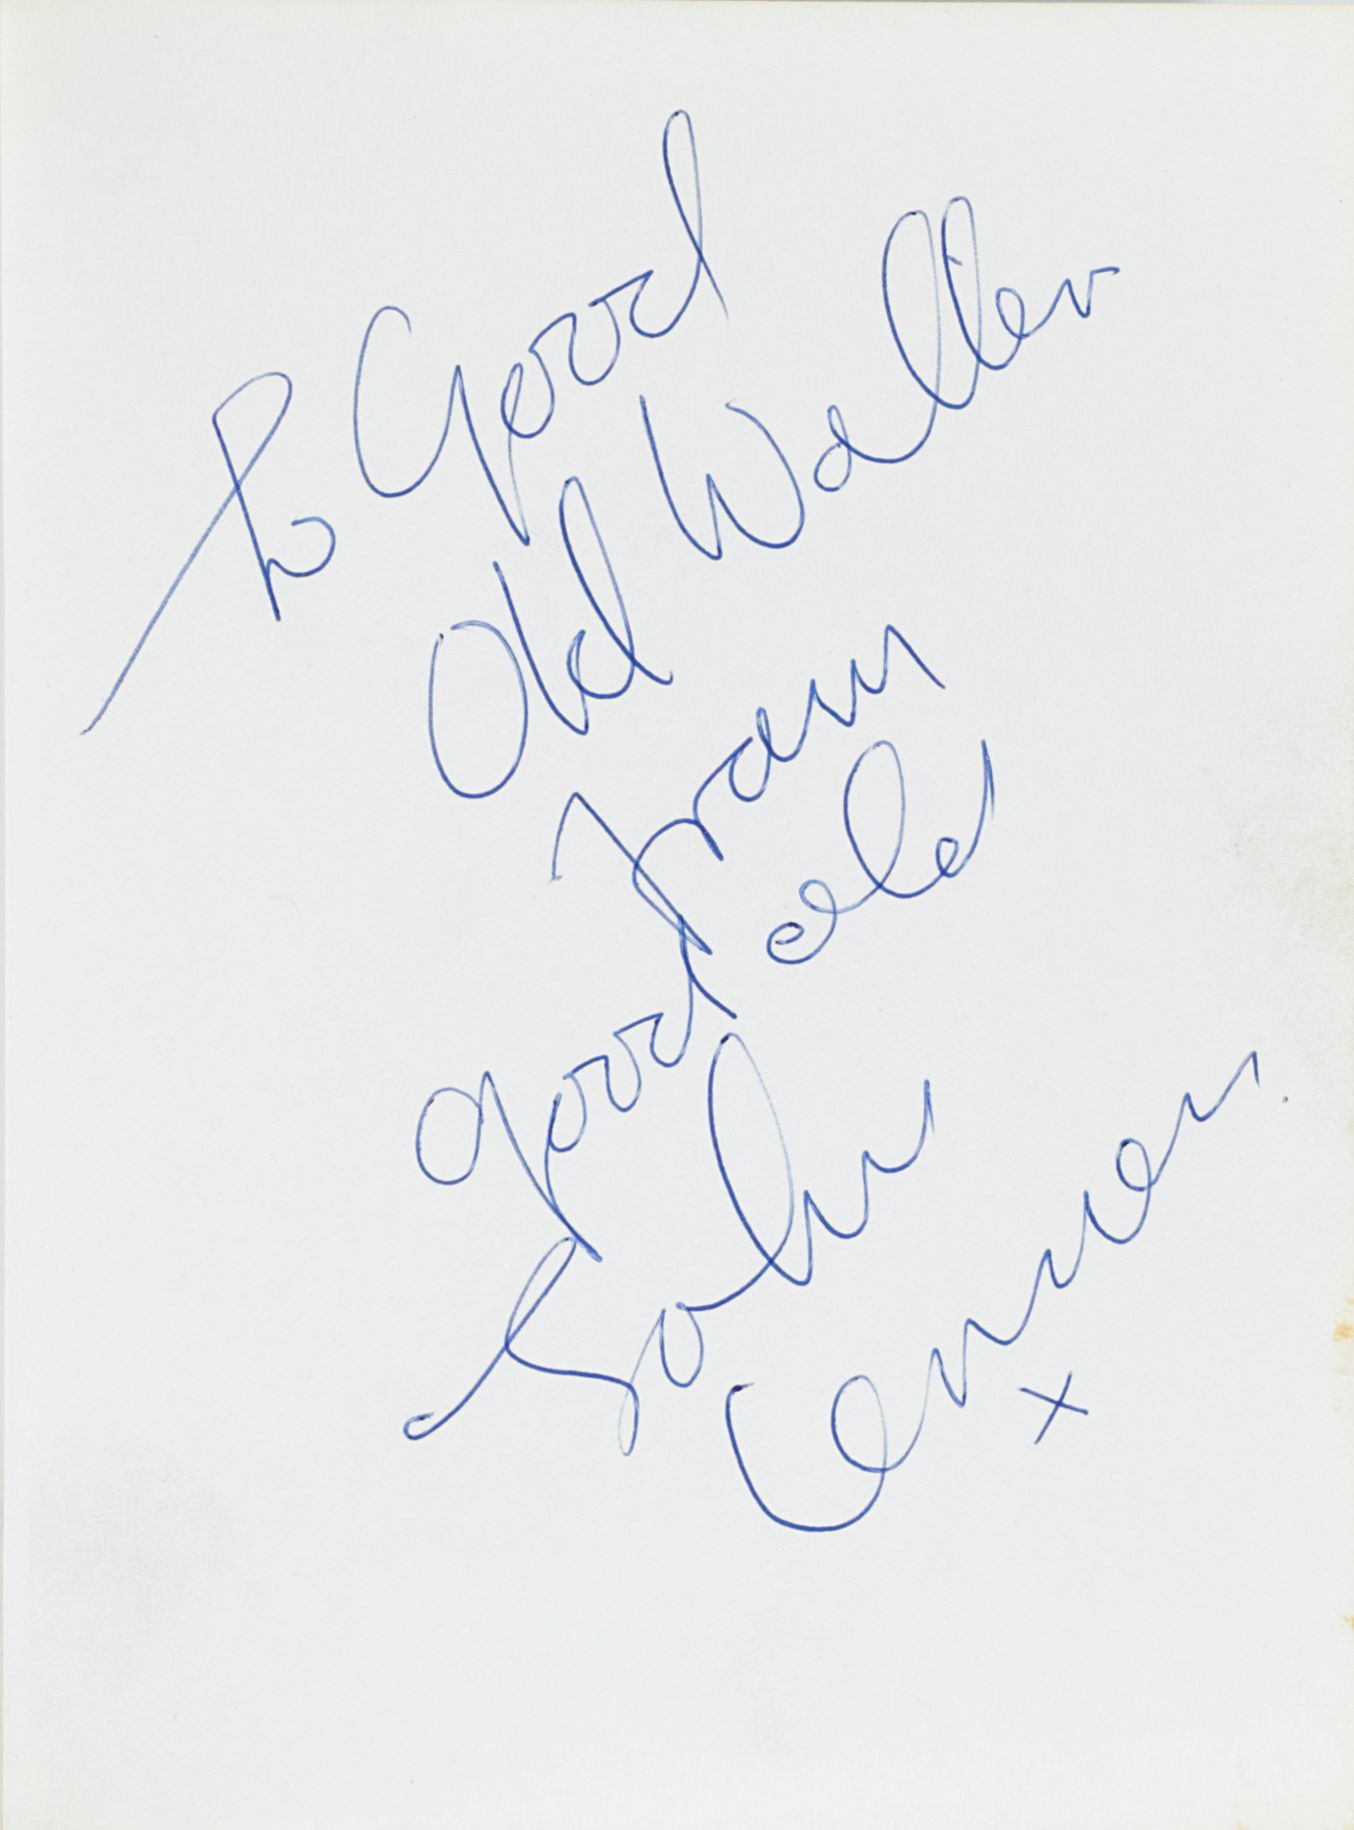 To Good
Old Walter
from
good old
John
Lennon
x